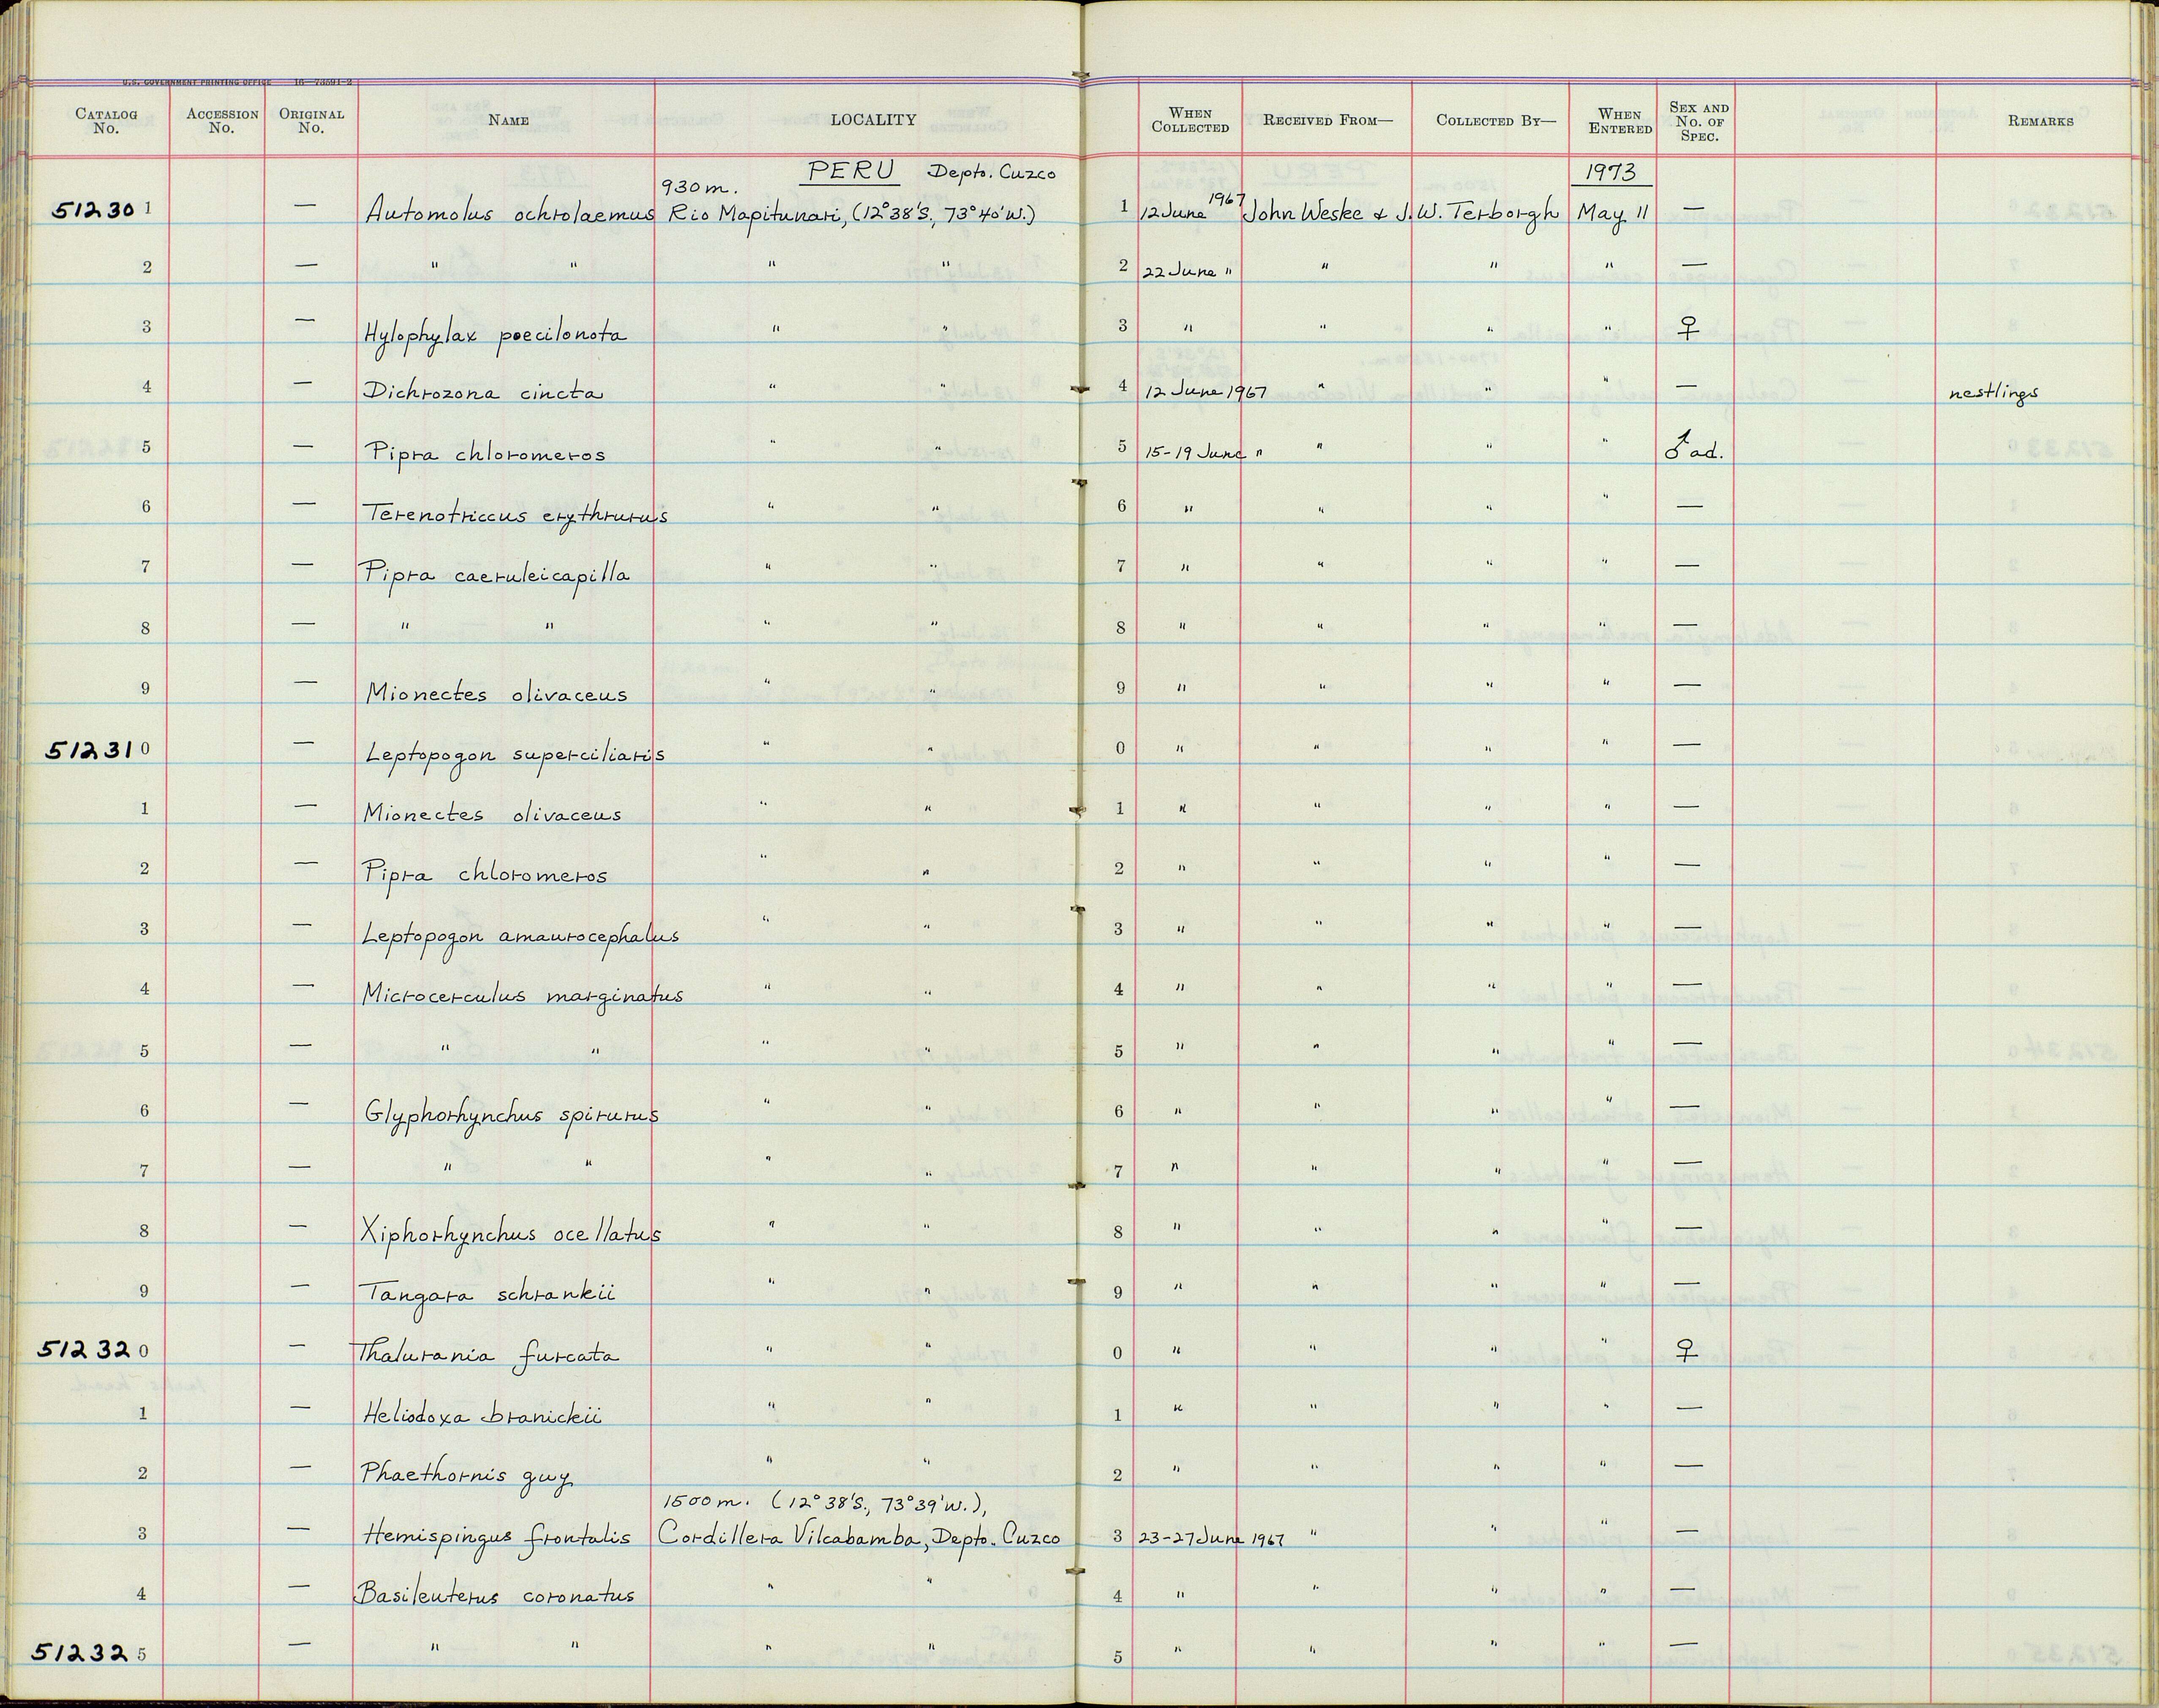 U.S. GOVERNMENT PRINTING OFFICE 16—73591-2
CATALOG No. ACCESSION No. ORIGINAL No. NAME LOCALITY WHEN COLLECTED RECEIVED FROM— COLLECTED BY— WHEN ENTERED SEX AND No. OF SPEC. REMARKS
PERU Depto. Cuzco 1973
930 m.
512301 — Automolus ochrolaemus Rio Mapitunari, (12°38'S, 73°40'W.) 1 12 June 1967 John Weske & J.W. Terborgh May 11 —
2 — " " " " 2 22 June " " " " —
3 — Hylophylax poecilonota " " 3 " " " " ♀
4 — Dichrozona cincta " " 4 12 June 1967 " " " — nestlings
5 — Pipra chloromeros " " 5 15-19 June " " " " ♂ ad.
6 — Terenotriccus erythrurus " " 6 " " " " —
7 — Pipra caeruleicapilla " " 7 " " " " —
8 — " " " " 8 " " " " —
9 — Mionectes olivaceus " " 9 " " " " —
512310 — Leptopogon superciliaris " " 0 " " " " —
1 — Mionectes olivaceus " " 1 " " " " —
2 — Pipra chloromeros " " 2 " " " " —
3 — Leptopogon amaurocephalus " " 3 " " " " —
4 — Microcerculus marginatus " " 4 " " " " —
5 — " " " " 5 " " " " —
6 — Glyphorhynchus spirurus " " 6 " " " " —
7 — " " " " 7 " " " " —
8 — Xiphorhynchus ocellatus " " 8 " " " " —
9 — Tangara schrankii " " 9 " " " " —
512320 — Thalurania furcata " " 0 " " " " ♀
1 — Heliodoxa branickii " " 1 " " " " —
2 — Phaethornis guy " " 2 " " " " —
1500 m. (12°38'S., 73°39'W.),
3 — Hemispingus frontalis Cordillera Vilcabamba, Depto. Cuzco 3 23-27 June 1967 " " " —
4 — Basileuterus coronatus " " 4 " " " " —
512325 — " " " " 5 " " " " —